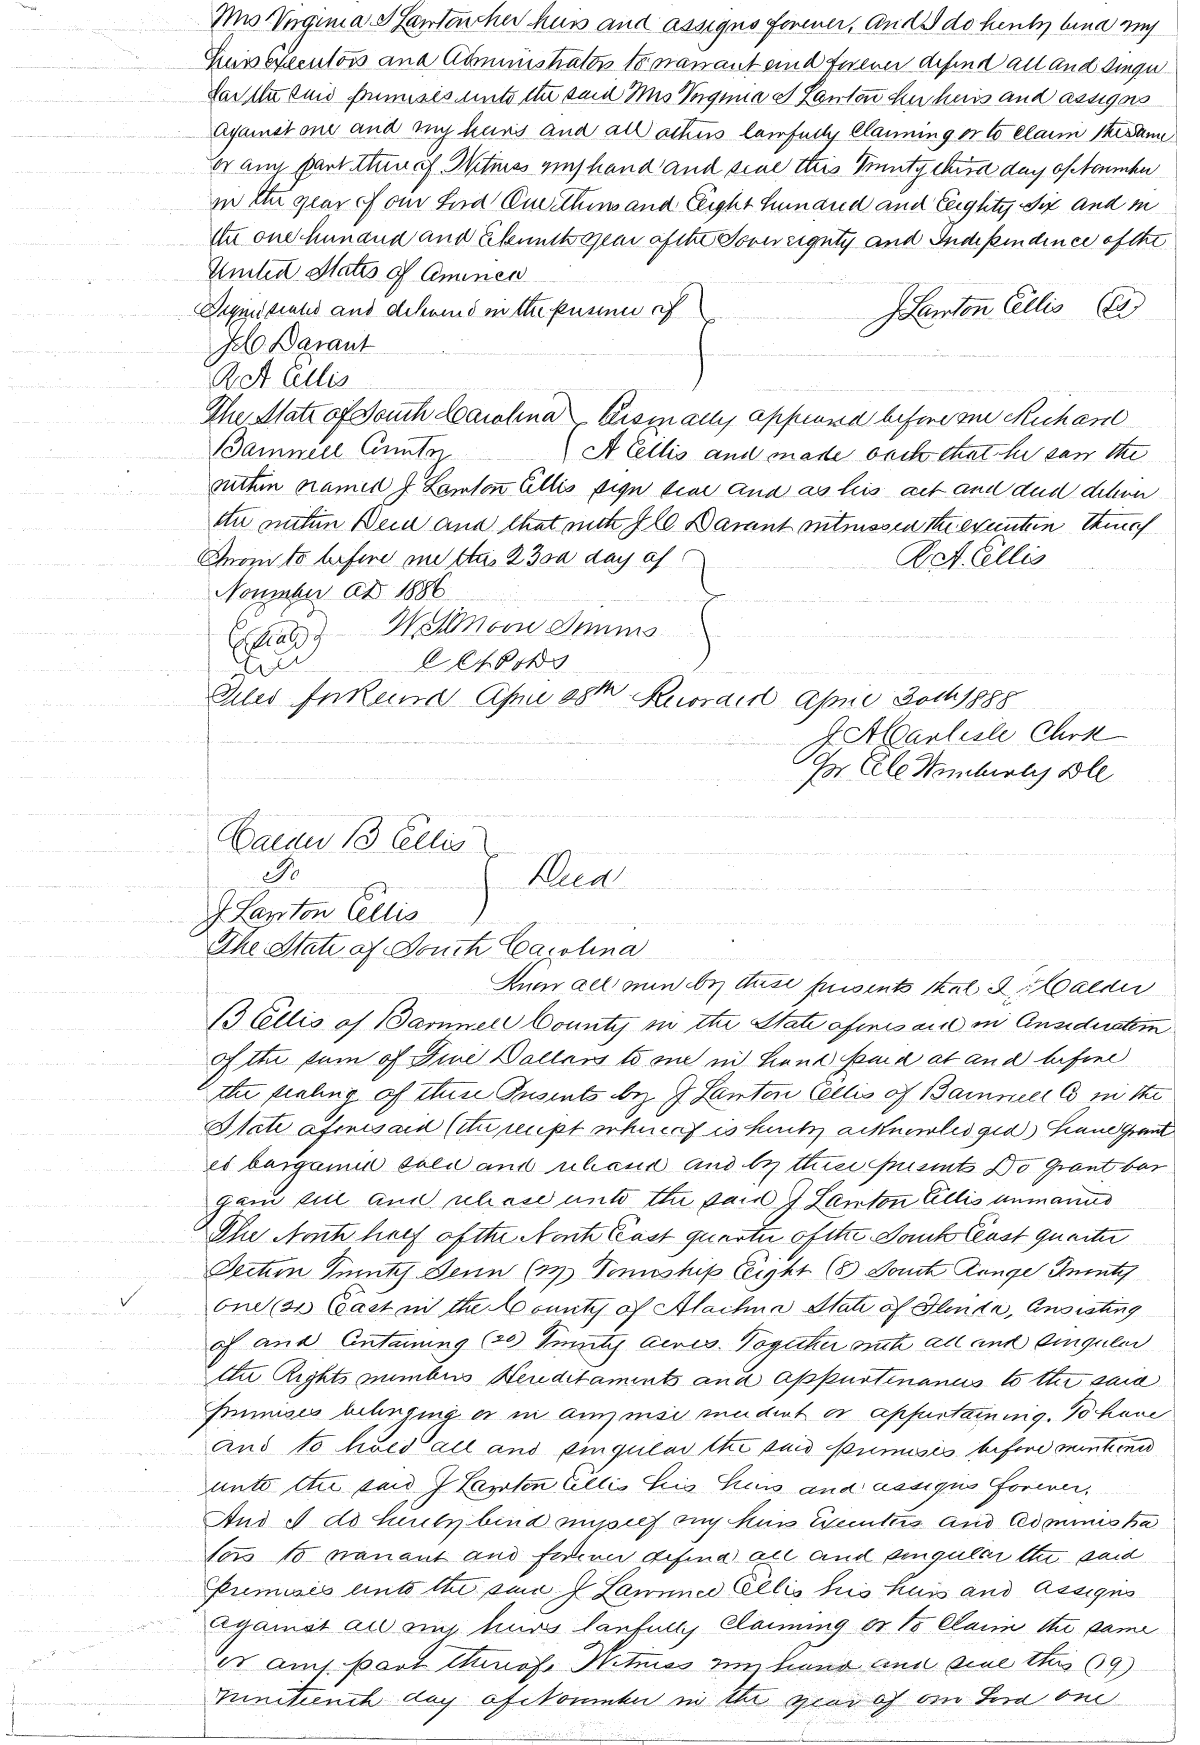 Mrs Virginia S Lawton her heirs and assigns forever, And I do hereby bind my
heirs Executors and Administrators to warrant and forever defend all and singu
lar the said premises unto the said Mrs Virginia S Lawton her heirs and assigns
against me and my heirs and all others lawfully claiming or to claim the same
or any part there of. Witness my hand and seal this Twenty third day of November
in the year of our Lord One thousand Eight hundred and Eighty-Six and in
the one hundred and Eleventh year of the Sovereignty and Independence of the
United States of America
Signed sealed and delivered in the presence of
J Lawton Ellis (LS)
Davant
R A Ellis
The State of South Carolina } Personally appeared before me Richard
Barnwell County } A Ellis and made oath that he saw the
within named J Lawton Ellis sign seal and as his act and deed deliver
the within Deed and that with J C Davant witnessed the execution thereof
Sworn to before me this 23rd day of
R A. Ellis
November AD 1886
W Moore Simms
Filed for Record April 28th Recorded April 30th 1888
J A Carlisle Clerk
Per Wimberly D C
Calder B Ellis
To } Deed
J Lawton Ellis
The State of South Carolina
Know all men by these presents that I, Calder
B Ellis of Barnwell County in the State aforesaid in Consideration
of the sum of Five Dollars to me in hand paid at and before
the sealing of these Presents by J Lawton Ellis of Barnwell Co in the
State aforesaid (the receipt whereof is hereby acknowledged) have grant
ed bargained sold and released and by these presents Do grant bar
gain sell and release unto the said J Lawton Ellis unmarried
The North half of the North East quarter of the South East quarter
Section Twenty Seven (27) Township Eight (8) South Range Twenty
one (21) East in the County of Alachua State of Florida, Consisting
of and Containing (20) Twenty acres. Together with all and singular
the Rights members Hereditaments and appurtenances to the said
premises belonging or in anywise incident or appertaining. To have
and to hold all and singular the said premises before mentioned
unto the said J Lawton Ellis his heirs and assigns forever.
And I do hereby bind myself my heirs Executors and Administra
tors to warrant and forever defend all and singular the said
premises unto the said J Lawrence Ellis his heirs and assigns
against all my heirs lawfully claiming or to Claim the same
or any part thereof. Witness my hand and seal this (19)
nineteenth day of November in the year of our Lord one